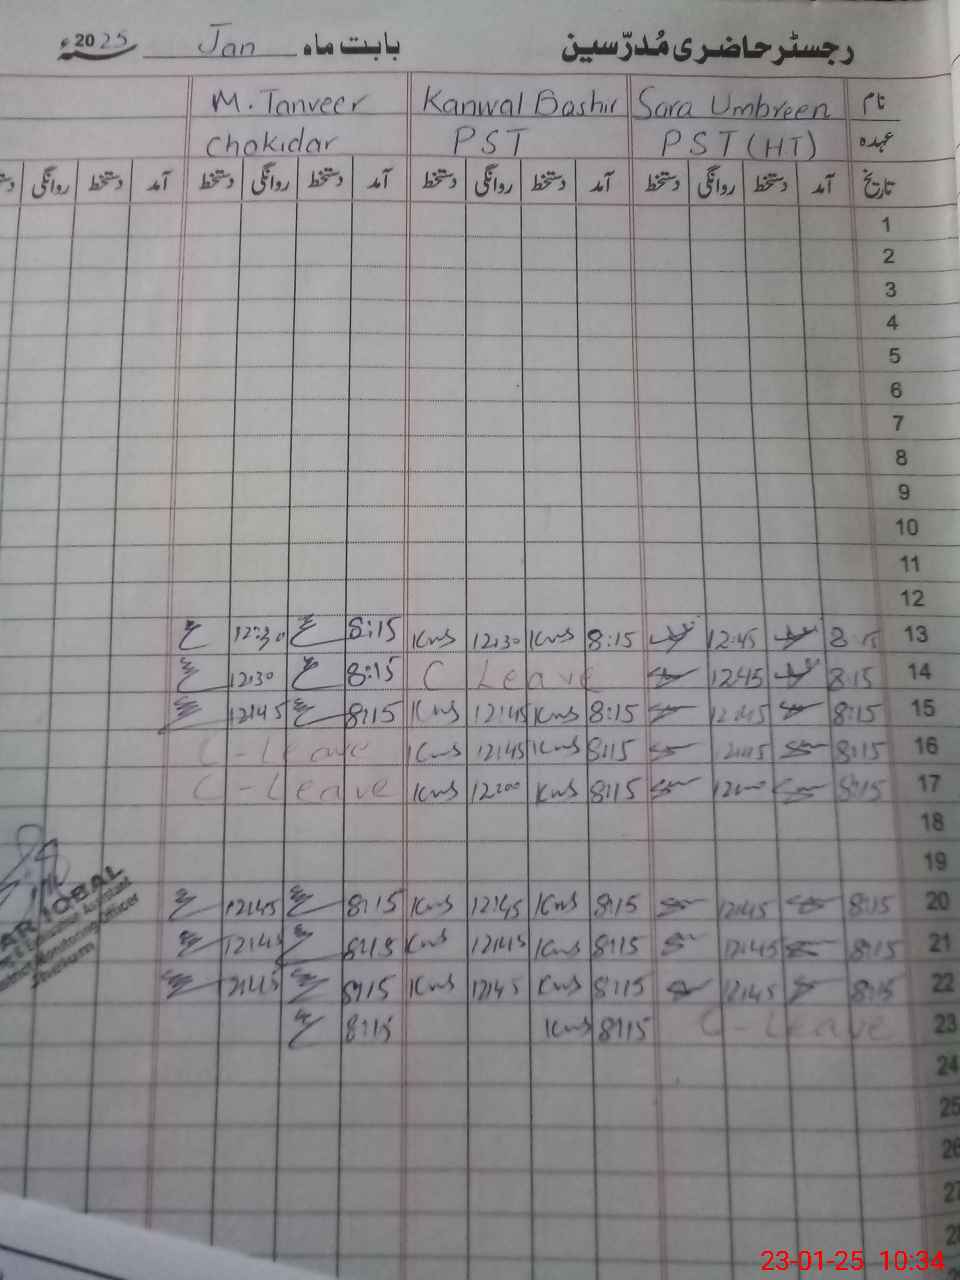 رجسٹر حاضری مُدرّسین بابت ماہ Jan 2025ء
نام Sara Umbreen Kanwal Bashir M. Tanveer
عہدہ PST (HT) PST Chokidar
تاریخ آمد دستخط روانگی دستخط آمد دستخط روانگی دستخط آمد دستخط روانگی دستخط آمد دستخط روانگی
1
2
3
4
5
6
7
8
9
10
11
12
13 8:15 12:45 8:15 Kws 12:30 Kws 8:15 12:30
14 8:15 12:45 C Leave 8:15 12:30
15 8:15 12:45 8:15 Kws 12:45 Kws 8:15 12:45
16 8:15 12:45 8:15 Kws 12:45 Kws C-Leave
17 8:15 12:00 8:15 Kws 12:00 Kws C-Leave
18
19
20 8:15 12:45 8:15 Kws 12:45 Kws 8:15 12:45
21 8:15 12:45 8:15 Kws 12:45 Kws 8:15 12:45
22 8:15 12:45 8:15 Kws 12:45 Kws 8:15 12:45
23 C-Leave 8:15 Kws 8:15
24
25
26
27
28
IQBAL
Monitoring Officer
23-01-25 10:34